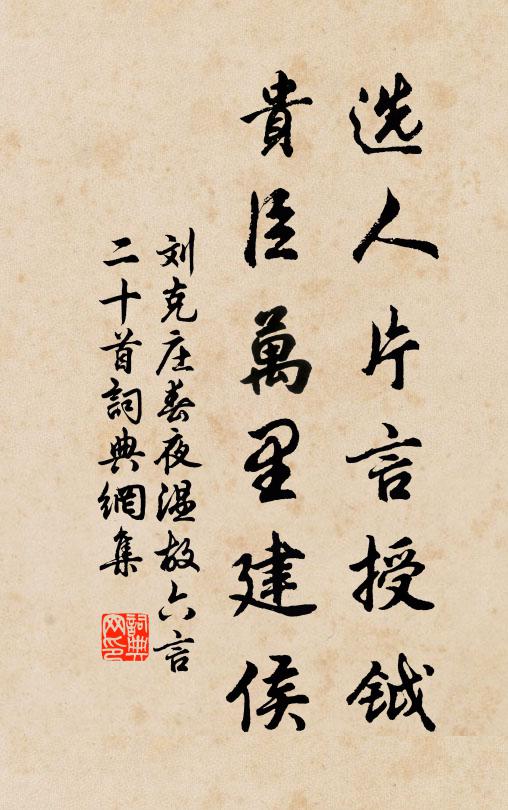 选人片言授钺
貴臣萬里建侯
刘克庄春夜温故六言
二十首詞典網集
詞典网印